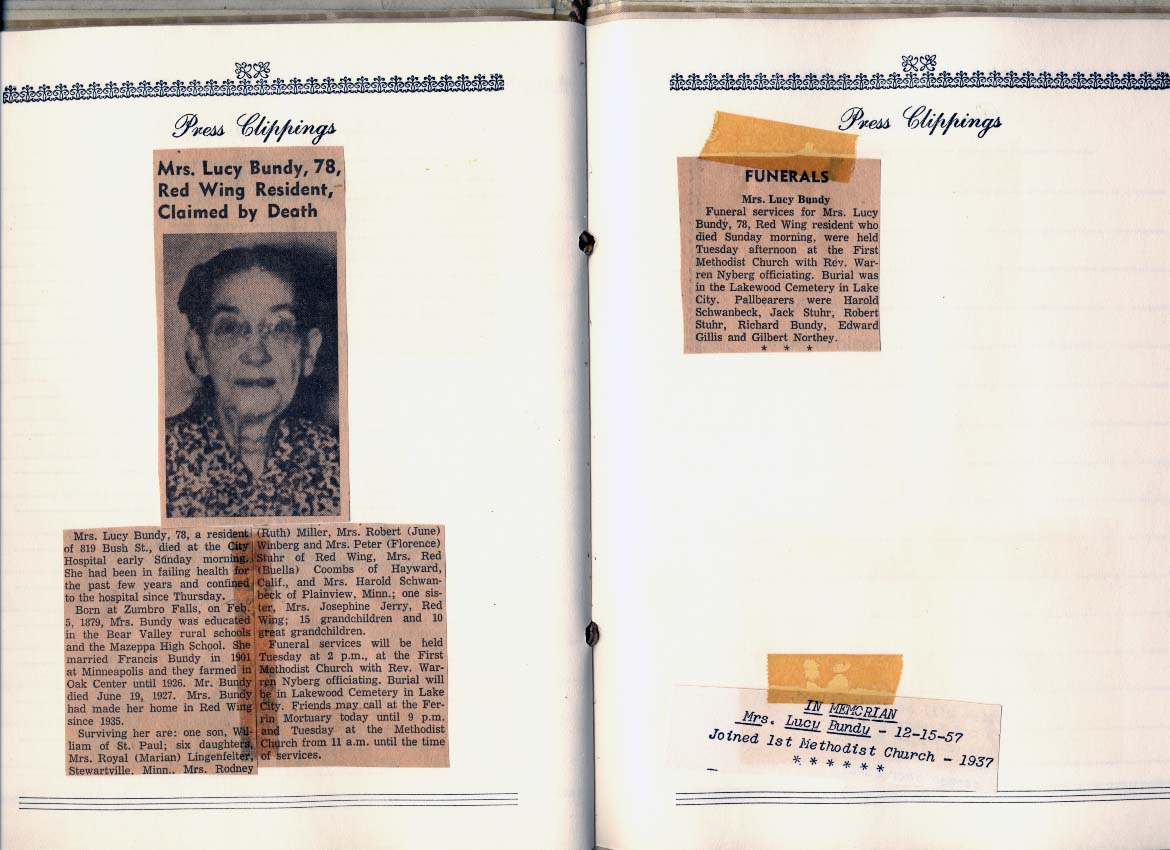 Press Clippings
Mrs. Lucy Bundy, 78,
Red Wing Resident,
Claimed by Death
Mrs. Lucy Bundy, 78, a resident
of 819 Bush St., died at the City
Hospital early Sunday morning.
She had been in failing health for
the past few years and confined
to the hospital since Thursday.
Born at Zumbro Falls, on Feb.
5, 1879, Mrs. Bundy was educated
in the Bear Valley rural schools
and the Mazeppa High School. She
married Francis Bundy in 1901
at Minneapolis and they farmed in
Oak Center until 1926. Mr. Bundy
died June 19, 1927. Mrs. Bundy
had made her home in Red Wing
since 1935.
Surviving her are: one son, Wil-
liam of St. Paul; six daughters,
Mrs. Royal (Marian) Lingenfelter,
Stewartville, Minn., Mrs. Rodney
(Ruth) Miller, Mrs. Robert (June)
Winberg and Mrs. Peter (Florence)
Stuhr of Red Wing, Mrs. Red
(Buella) Coombs of Hayward,
Calif., and Mrs. Harold Schwan-
beck of Plainview, Minn.; one sis-
ter, Mrs. Josephine Jerry, Red
Wing; 15 grandchildren and 10
great grandchildren.
Funeral services will be held
Tuesday at 2 p.m., at the First
Methodist Church with Rev. War-
ren Nyberg officiating. Burial will
be in Lakewood Cemetery in Lake
City. Friends may call at the Fer-
rin Mortuary today until 9 p.m.
and Tuesday at the Methodist
Church from 11 a.m. until the time
of services.
Press Clippings
FUNERALS
Mrs. Lucy Bundy
Funeral services for Mrs. Lucy
Bundy, 78, Red Wing resident who
died Sunday morning, were held
Tuesday afternoon at the First
Methodist Church with Rev. War-
ren Nyberg officiating. Burial was
in the Lakewood Cemetery in Lake
City. Pallbearers were Harold
Schwanbeck, Jack Stuhr, Robert
Stuhr, Richard Bundy, Edward
Gillis and Gilbert Northey.
* * *
IN MEMORIAN
Mrs. Lucy Bundy - 12-15-57
Joined 1st Methodist Church - 1937
* * * * * *